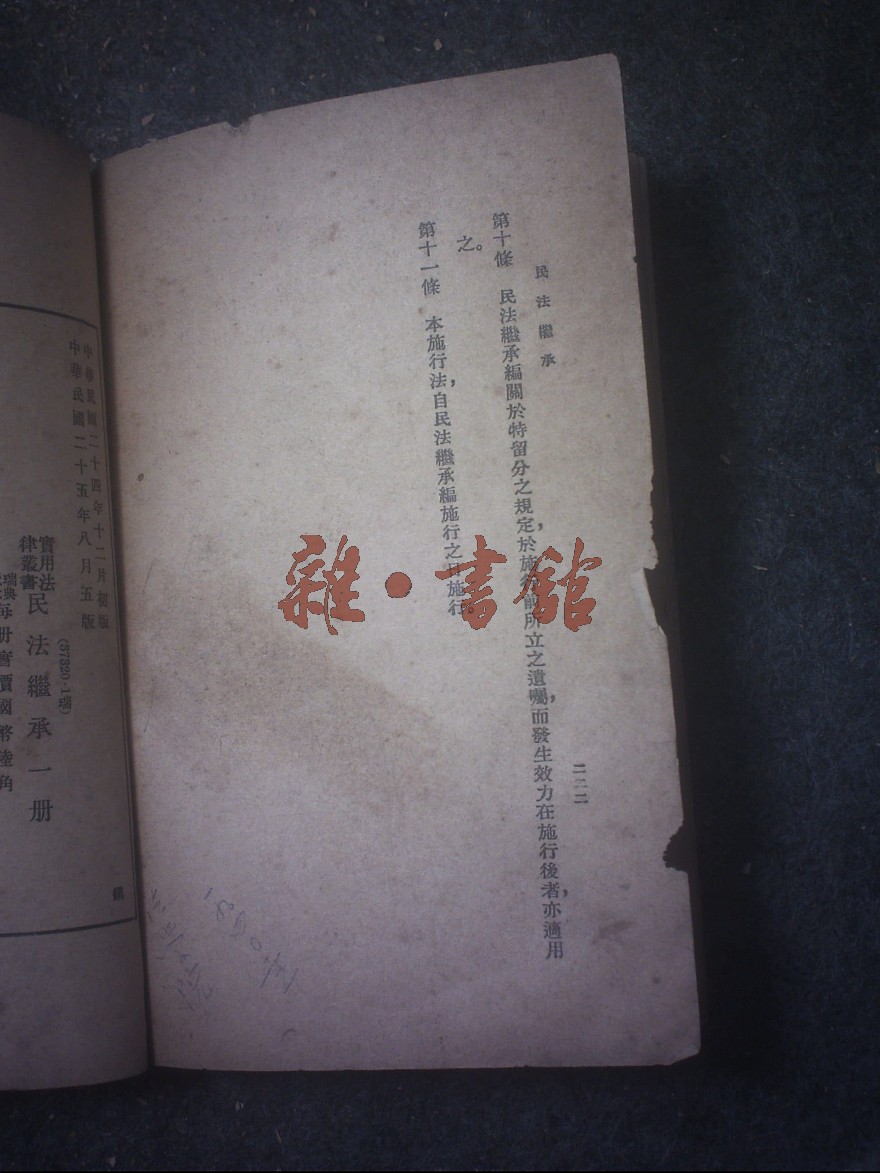 民法繼承
二二二
第十條　民法繼承編關於特留分之規定，於施行前所立之遺囑，而發生效力在施行後者，亦適用
之。
第十一條　本施行法，自民法繼承編施行之日施行。
雜·書館
中華民國二十四年十二月初版
中華民國二十五年八月五版
(57320·1瑞)
實用法
律叢書
民法繼承一册
瑞典
每册實價國幣陸角